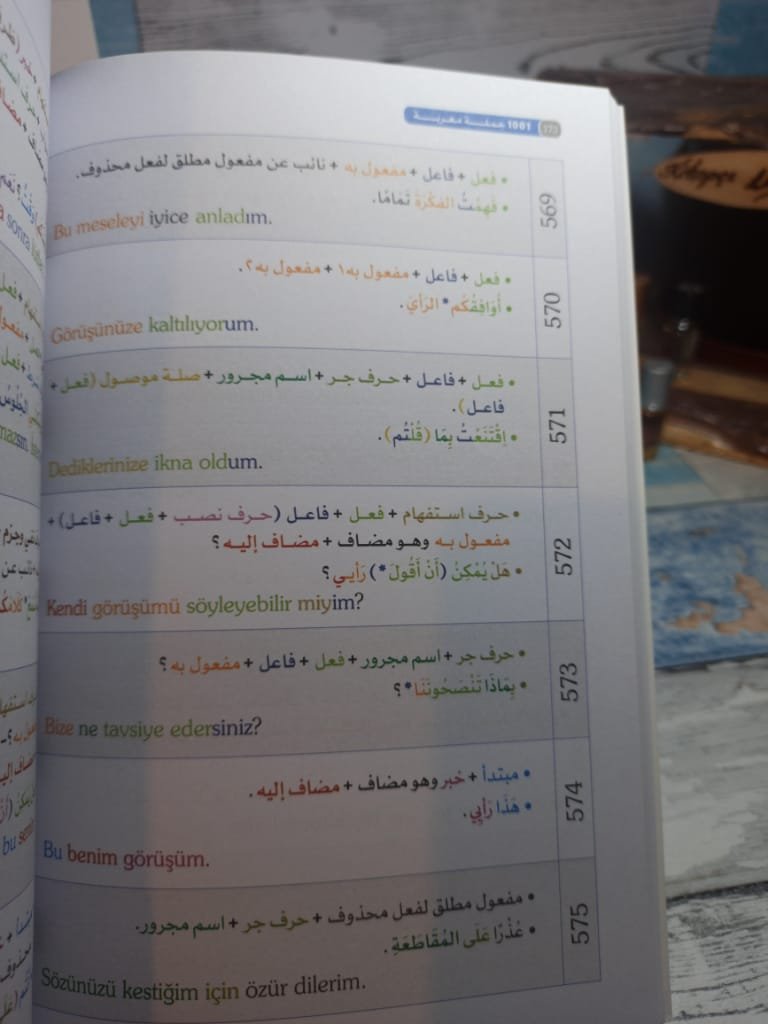 1001 جملة معربة
569
• فعل + فاعل + مفعول به + نائب عن مفعول مطلق لفعل محذوف.
• فَهِمْتُ الفَكْرَةَ تَمَامًا.
Bu meseleyi iyice anladım.
570
• فعل + فاعل + مفعول به١ + مفعول به٢.
• أُوَافِقُكُم* الرَأيَ.
Görüşünüze kaltılıyorum.
571
• فعل + فاعل + حرف جر + اسم مجرور + صلة موصول (فعل +
فاعل).
• اِقْتَنَعْتُ بِمَا (قُلْتُم).
Dediklerinize ikna oldum.
572
• حرف استفهام + فعل + فاعل (حرف نصب + فعل + فاعل) +
مفعول به وهو مضاف + مضاف إليه؟
• هَلْ يُمْكِنُ (أَنْ أَقُولَ*) رَأْيي؟
Kendi görüşümü söyleyebilir miyim?
573
• حرف جر + اسم مجرور + فعل + فاعل + مفعول به؟
• بِمَاذَا تَنْصَحُونَنَا*؟
Bize ne tavsiye edersiniz?
574
• مبتدأ + خبر وهو مضاف + مضاف إليه.
• هَذَا رَأْيِي.
Bu benim görüşüm.
575
• مفعول مطلق لفعل محذوف + حرف جر + اسم مجرور.
• عُذْرًا عَلَى المُقَاطَعَةِ.
Sözünüzü kestiğim için özür dilerim.